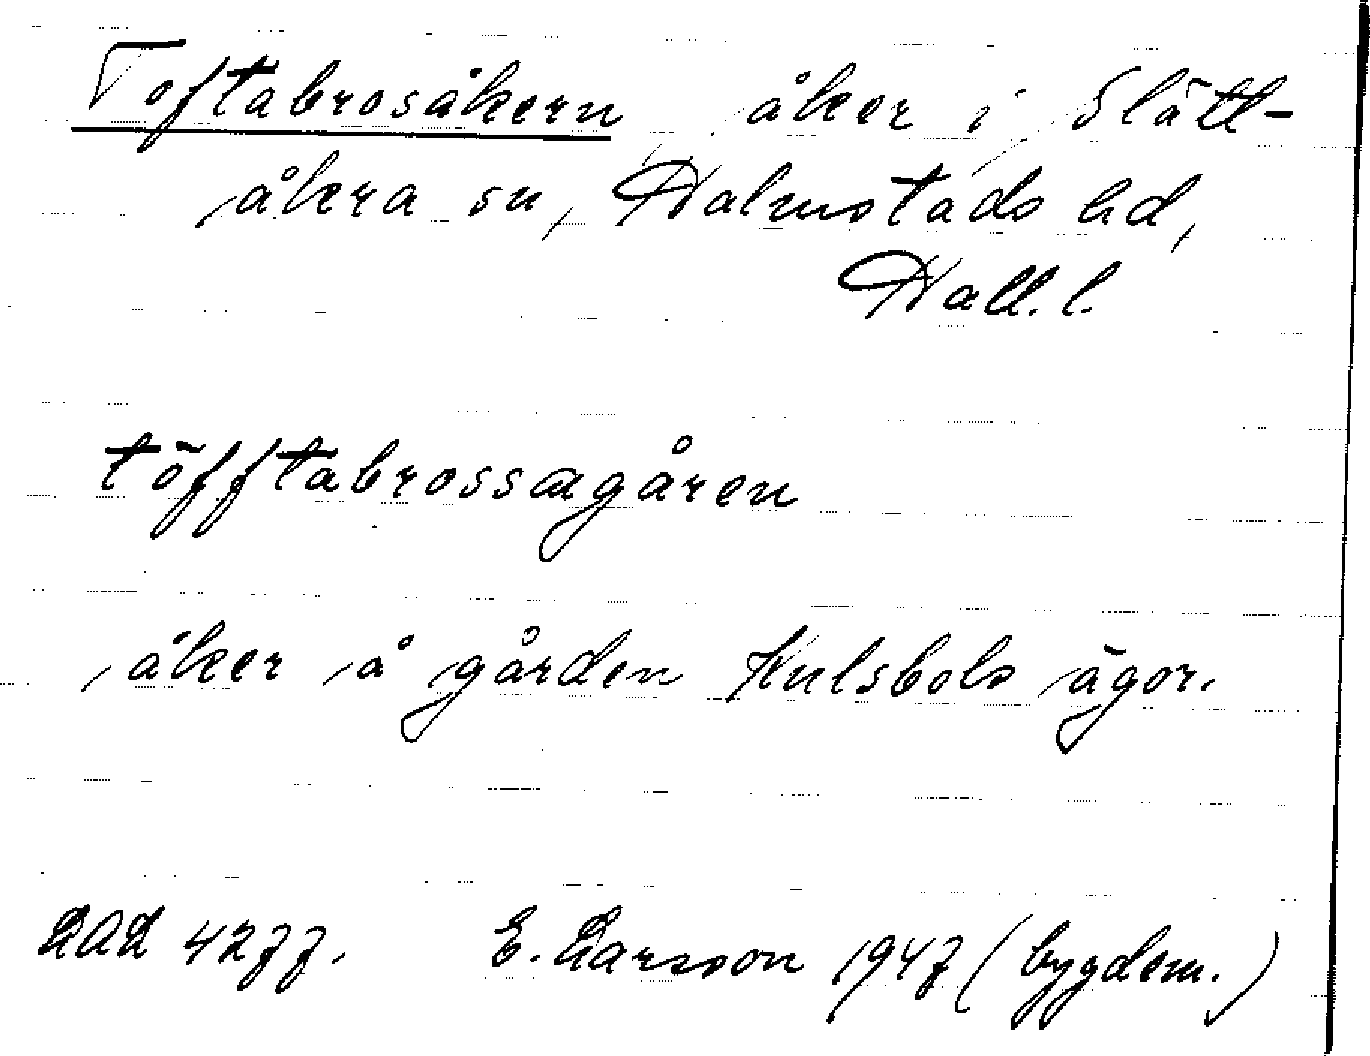 Toftabrosåkern åker i Slätt-
åkra sn, Halmstads hd,
Hall. l.
töfftabrossagåren
åker å gården Kulsbols ägor.
LAL 4277. E. Larsson 1947 (bygdem.)